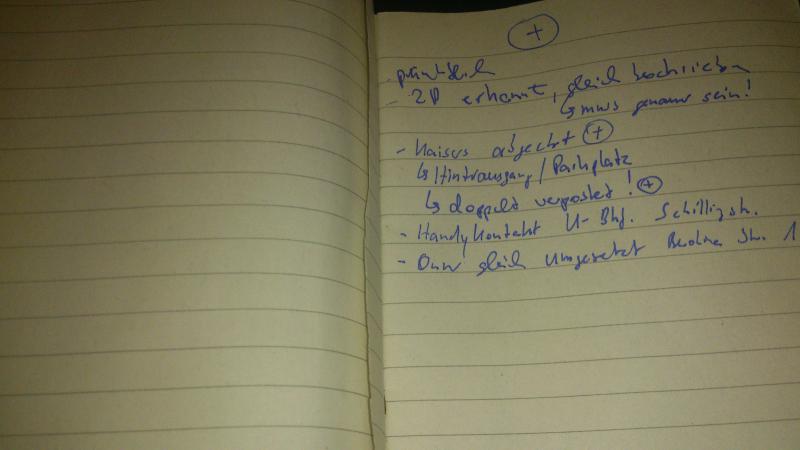 +
pünktlich
- ZP erkannt, gleich beschrieben
↳ muss genauer sein!
- Kaisers abgecheckt +
↳ Hinterausgang / Parkplatz
↳ doppelt verpostet! +
- Handykontakt U-Bhf. Schillingstr.
- gleich umgesetzt Berliner Str. 1